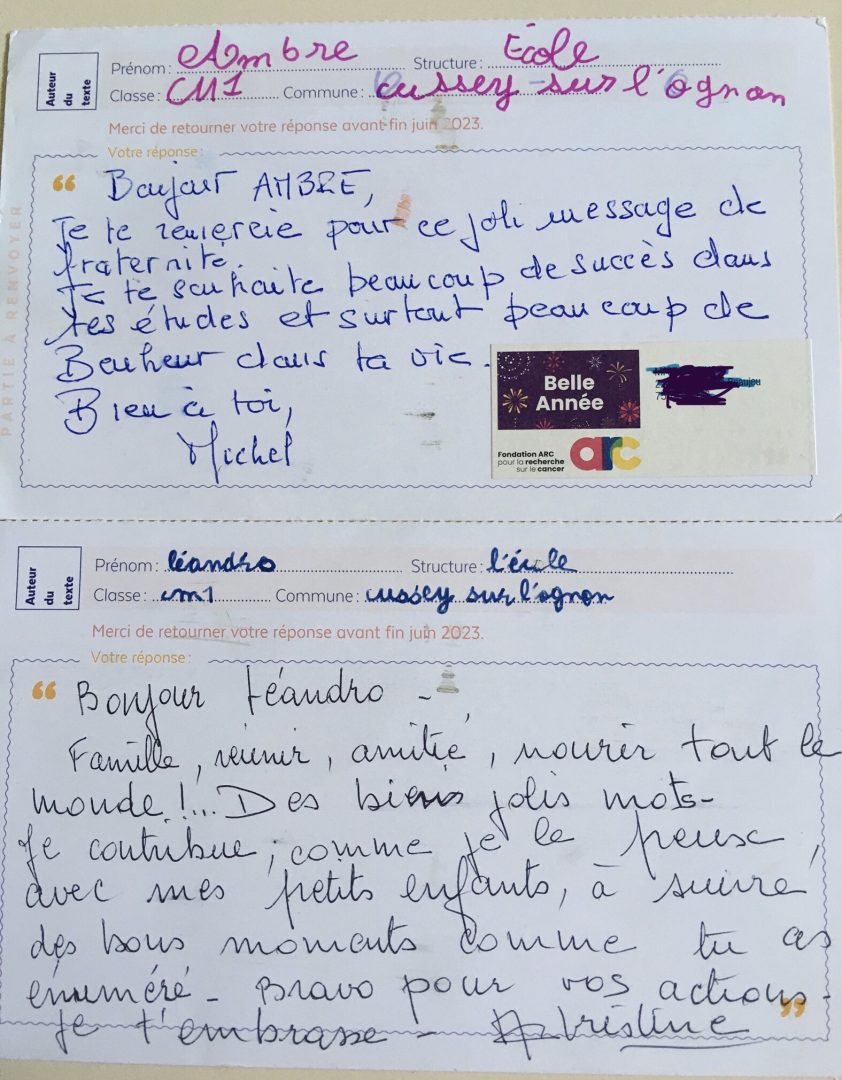 Auteur du texte
Prénom : Ambre Structure : École
Classe : CM1 Commune : cussey-sur l'ognon
Merci de retourner votre réponse avant fin juin 2023.
Votre réponse :
PARTIE À RENVOYER
“ Bonjour AMBRE,
Je te remercie pour ce joli message de
fraternité.
Je te souhaite beaucoup de succès dans
tes études et surtout beaucoup de
Bonheur dans ta vie.
Bien à toi,
Michel
Belle
Année
Fondation ARC
pour la recherche
sur le cancer
arc
Auteur du texte
Prénom : léandro Structure : l'école
Classe : cm1 Commune : cussey sur l'ognon
Merci de retourner votre réponse avant fin juin 2023.
Votre réponse :
“ Bonjour Léandro -
Famille, réunir, amitié, nourir tout le
monde !... Des biens jolis mots-
Je contribue, comme je le peux,
avec mes petits enfants, à suivre
des bons moments comme tu as
énuméré - Bravo pour vos actions - ”
Je t'embrasse -